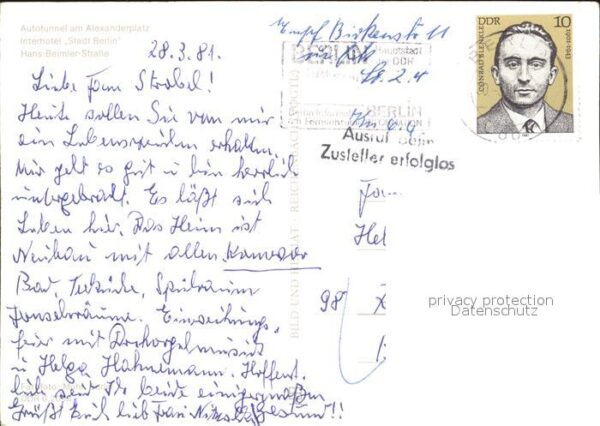 Autotunnel am Alexanderplatz
Interhotel „Stadt Berlin"
Hans-Beimler-Straße
28.3.81.
Liebe Frau Strobel!
Heute sollen Sie von mir
ein Lebenszeichen erhalten.
Mir geht es gut u bin herrlich
untergebracht. Es läßt sich
Leben hier. Das Heim ist
Neubau mit allem Komfor
Bad, Teeküche, Spielraum
Fernsehräume. Einweihungs,
feier mit Drehorgelmusik
u Helga Hahnemann. Hoffent,
lich seid Ihr beide einigermaßen
Grüßt Euch lieb Frau gesund!!
Birkenstr 11
BERLIN
Hauptstadt
DDR
BERLIN
Ausruf beim
Zusteller erfolglos
DDR 10
CONRAD BLENKLE 1901-1943
BILD UND HEIMAT REICHENBACH
98
privacy protection
Datenschutz